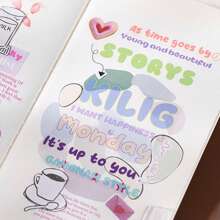 MILK
As time goes by...
Young and beautiful
STORYS
KILIG
I WANT HAPPINESS
Monday
It's up to you
GANGNAM STYLE